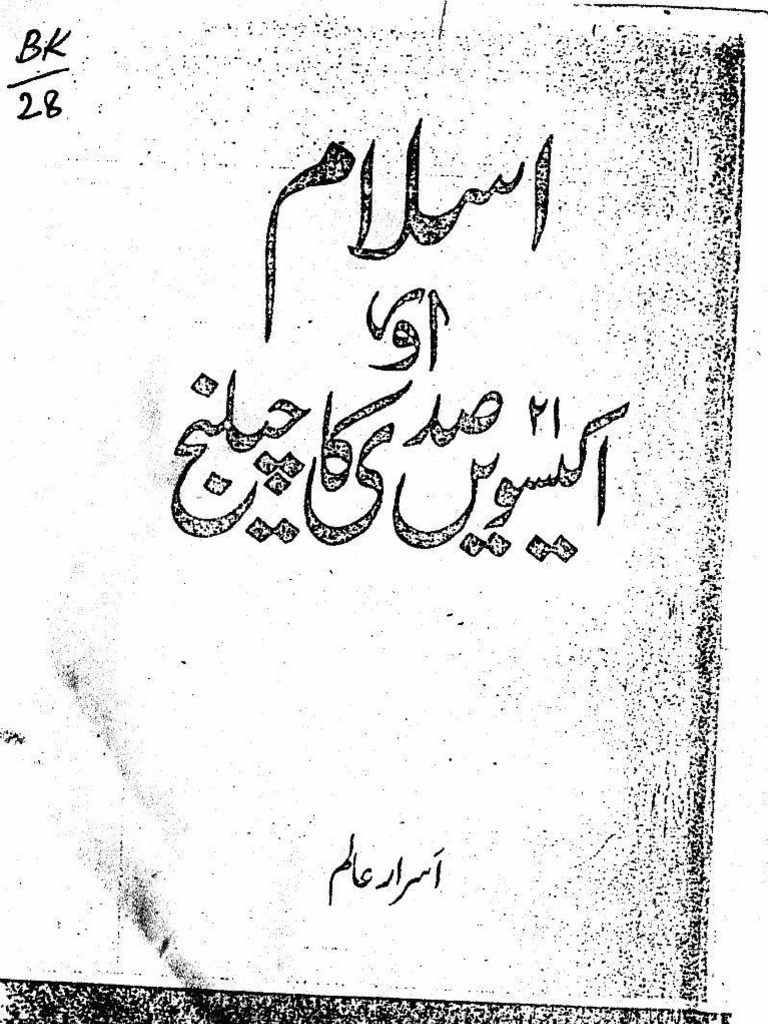 BK
28
اسلام
اور
۲۱
اکیسویں صدی کا چیلنج
اَسرار عالم